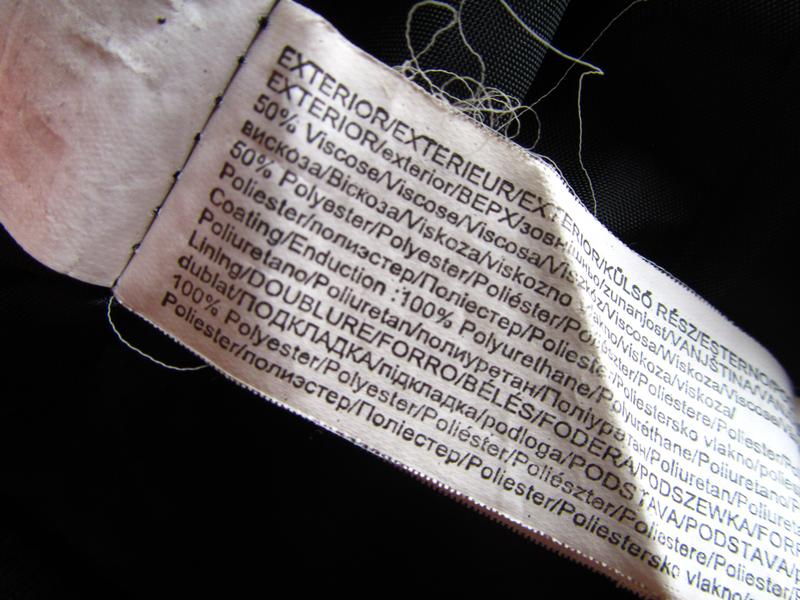 EXTERIOR/EXTERIEUR/EXTERIOR/KÜLSŐ RÉSZ/ESTERNO
EXTERIOR/exterior/ВЕРХ/зовнішньо/zunanjost/VANJŠTINA
50% Viscose/Viscose/Viscosa/Viszkóz/Viscosa/Wiskoza/Viscose
вискóза/Віскоза/Viskoza/viskozno /viskoza/viskoza/
50% Polyester/Polyester/Poliéster/Poliészter/Poliestere/Poliester
Poliester/полиэстер/Поліестер/Poliestersko vlakno
Coating/Enduction :100% Polyurethane/Polyuréthane/Poliuretano
Poliuretano/Poliuretan/полиуретан/Поліуретан/Poliuretan/Poliuretan
Lining/DOUBLURE/FORRO/BÉLÉS/FODERA/PODSZEWKA/FORRO
dublat/ПОДКЛАДКА/підкладка/podloga/PODSTAVA/PODSTAVA
100% Polyester/Polyester/Poliéster/Poliészter/Poliestere/Poliester
Poliester/полиэстер/Поліестер/Poliester/Poliestersko vlakno